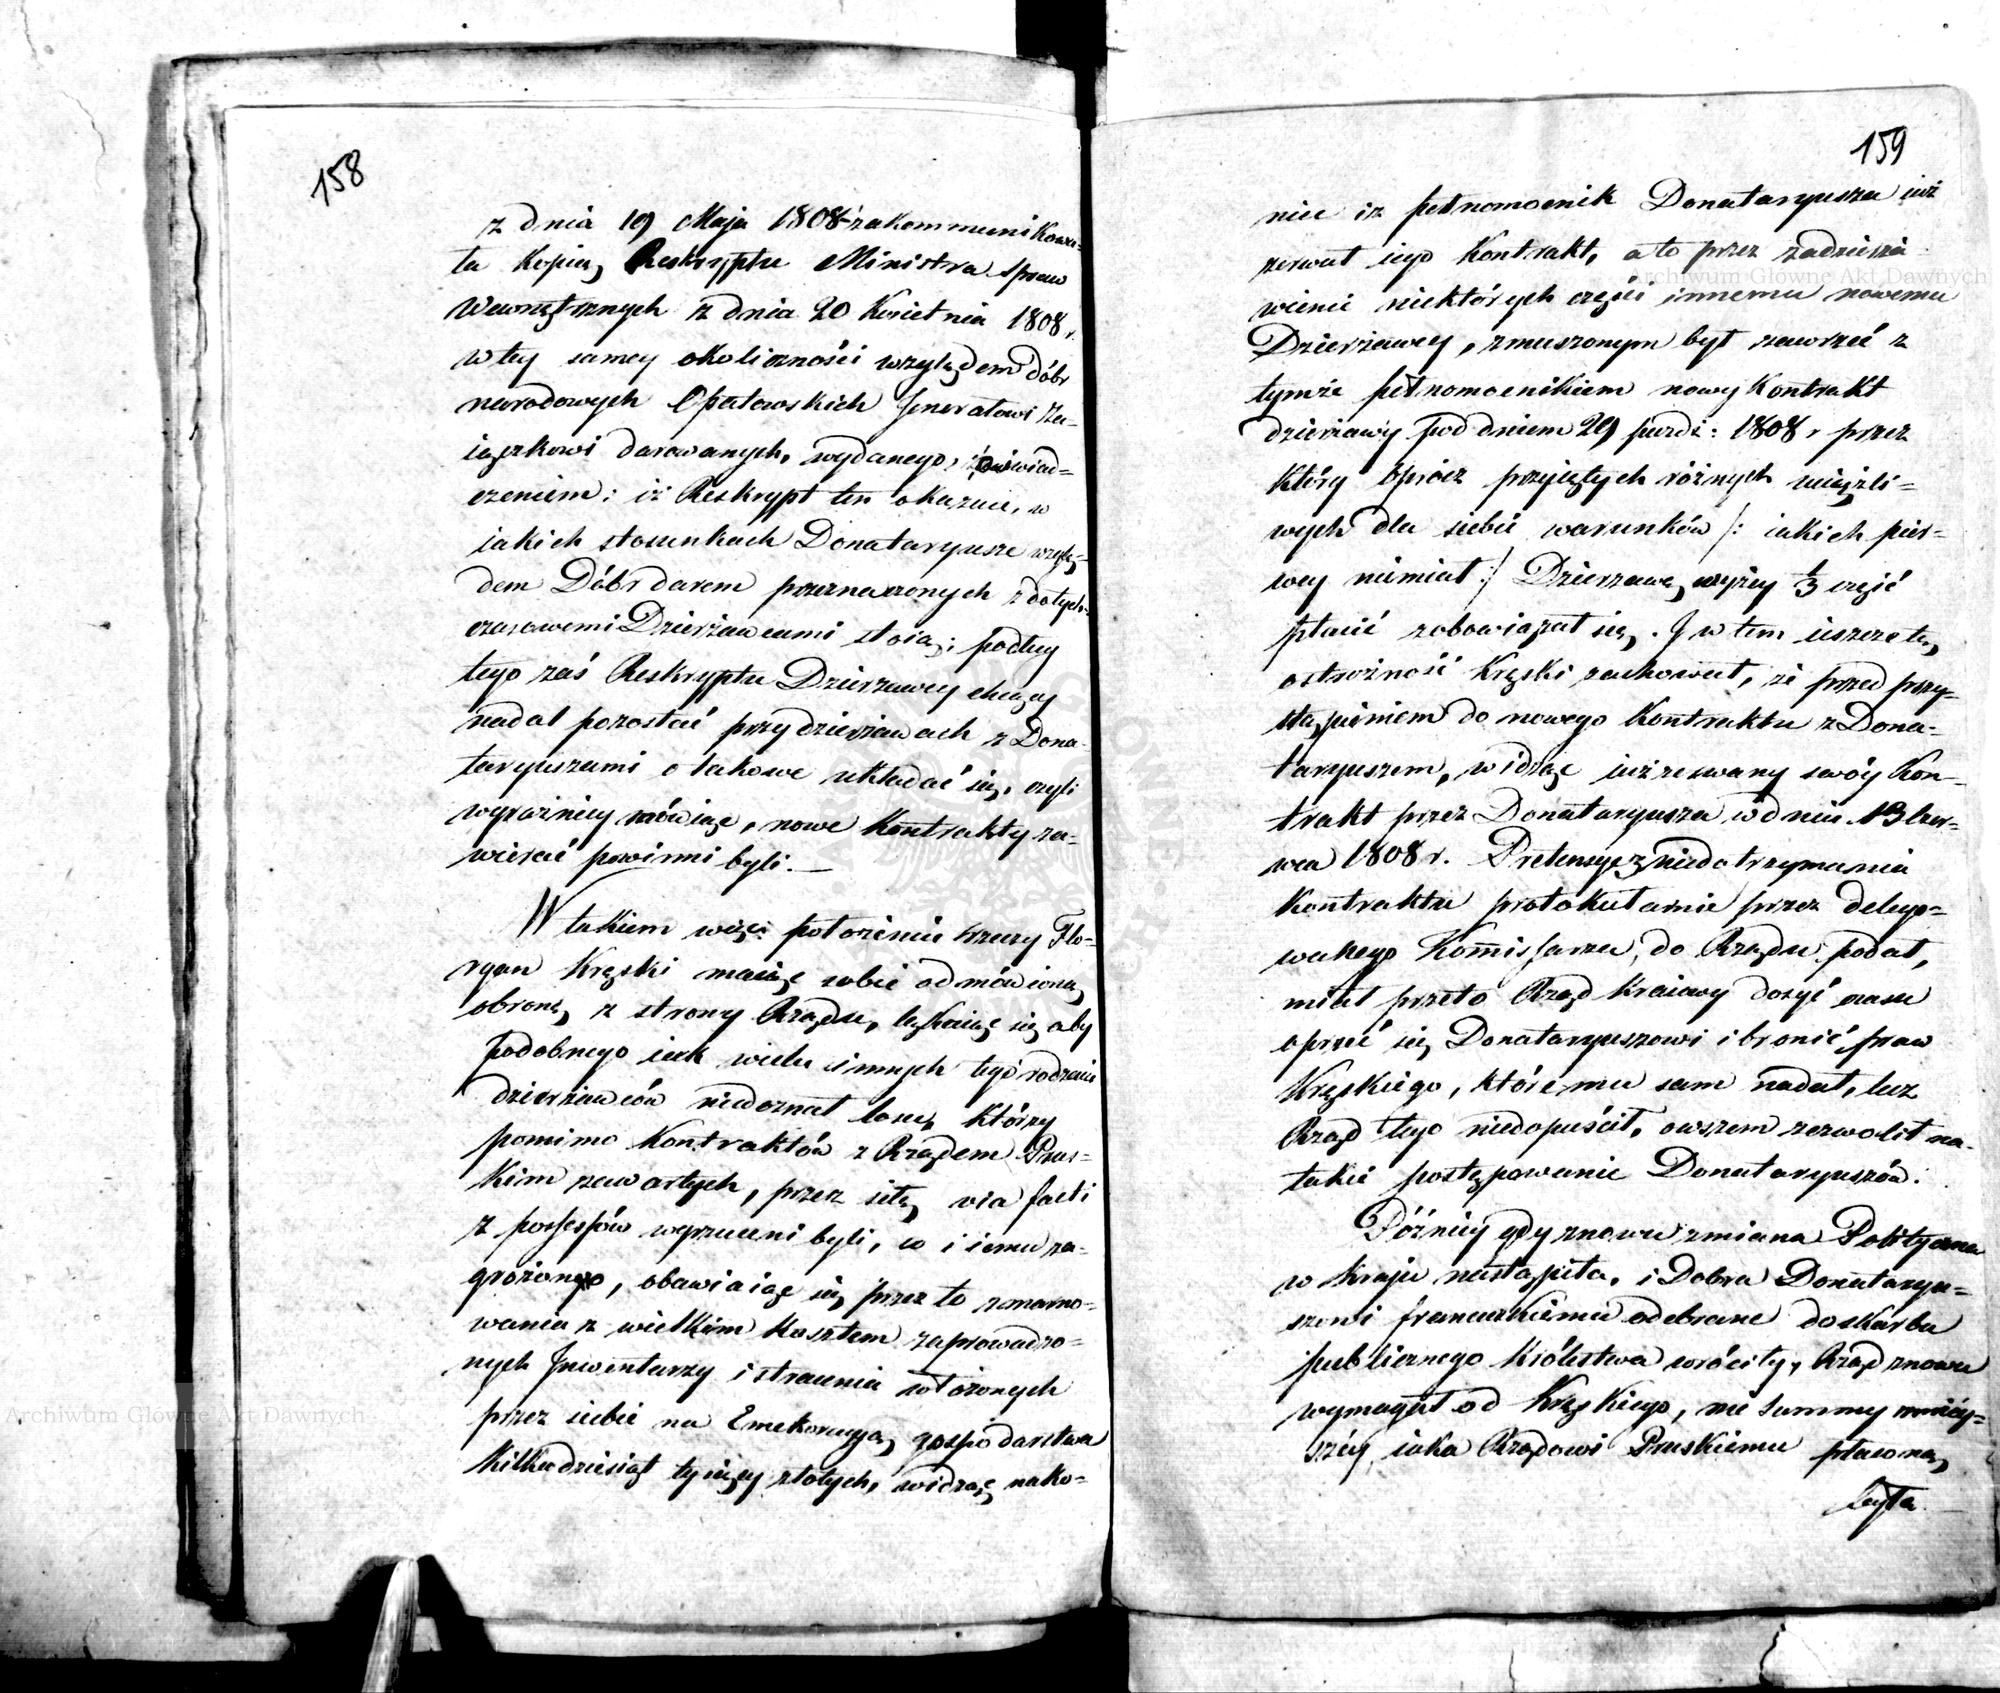 158
z dnia 19 Maja 1808 zakommunikowa=
ła kopią Reskryptu Ministra Spraw
Wewnętrznych z dnia 20 Kwietnia 1808 r.
w tey samey okoliczności względem dóbr
narodowych Opatowskich Jenerałowi Za=
iączkowi darowanych, wydanego, z oświad=
czeniem: iż Reskrypt ten okazuie, w
iakich stosunkach Donataryusze wzglę=
dem Dóbr darem przeznaczonych z dotych=
czasowemi Dzierżawcami stoią; podług
tego zaś Reskryptu Dzierżawcy chcący
nadal pozostać przy dzierżawach z Dona=
taryuszami o takowe układać się, czyli
wyraźniey mówiąc, nowe Kontrakty za=
wierać powinni byli. —
W takiem więc położeniu rzeczy Flo=
ryan Kręski maiąc sobie odmówioną
obronę z strony Rządu, lękaiąc się aby
podobnego iak wielu innych tego rodzaiu
dzierżawców niedoznał losu, którzy
pomimo Kontraktów z Rządem Prus=
kim zawartych, przez siłę via facti
z possessów wyrzuceni byli, co i iemu za=
grożono, obawiaiąc się przez to zmarno=
wania z wielkim kosztem zaprowadzo=
nych Inwentarzy i stracenia włożonych
przez siebie na gospodarstwa
kilkadziesiąt tysięcy złotych, widząc nako=
159
niec iż pełnomocnik Donataryusza iuż
zerwał iego Kontrakt, a to przez zadzierża=
wienie niektórych części innemu nowemu
Dzierżawcy, zmuszonym był zawrzeć z
tymże pełnomocnikiem nowy Kontrakt
dzierżawy pod dniem 29 Paźdz: 1808 r przez
który oprócz przyiętych różnych uciążli=
wych dla siebie warunków /: iakich pier=
wey niemiał :/ Dzierżawę wyżey 1/3 część
płacić zobowiązał się. I w tem ieszcze tę
ostrożność Kręski zachował, że przed przy=
stąpieniem do nowego Kontraktu z Dona=
taryuszem, widząc iuż zerwany swóy Kon=
trakt przez Donataryusza w dniu 13 Czer=
wca 1808 r. Pretensye z niedotrzymania
Kontraktu protokularnie przez delego=
wanego Kommissarza, do Rządu podał,
miał przeto Rząd Kraiowy dosyć czasu
oprzeć się Donataryuszowi i bronić praw
Kręskiego, które mu sam nadał, lecz
Rząd tego niedopuścił, owszem zezwolił na
takie postępowanie Donataryuszów.
Późniey gdy znowu zmiana Polityczna
w kraju nastąpiła, i Dobra Donatary=
szowi francuzkiemu odebrane do skarbu
publicznego Królestwa wróciły, Rząd znowu
wymagał od Kręskiego, nie Summy mniey=
szey iaka Rządowi Pruskiemu płacona
była
Archiwum Główne Akt Dawnych
Archiwum Główne Akt Dawnych